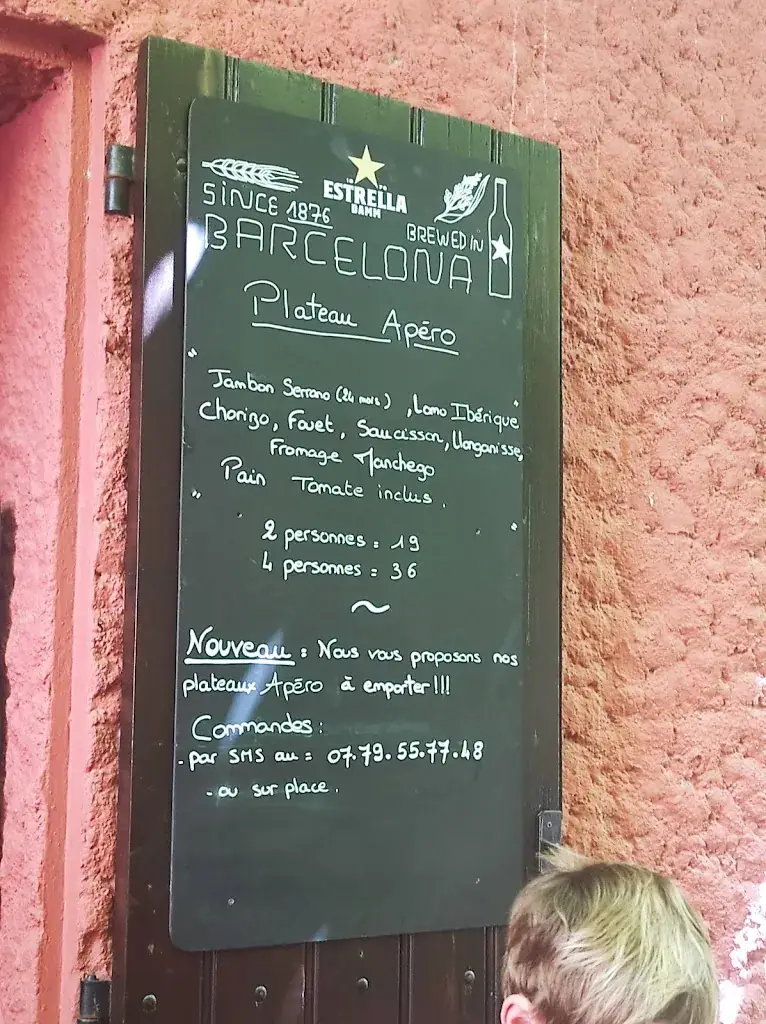 18 76
ESTRELLA
DAMM
SINCE 1876
BREWED IN
BARCELONA
Plateau Apéro
" Jambon Serrano (24 mois), Lomo Ibérique
Chorizo, Fouet, Saucisson, Llonganisse,
Fromage Manchego
Pain Tomate inclus.
2 personnes = 19
4 personnes = 36
~
Nouveau : Nous vous proposons nos
plateaux Apéro à emporter!!!
Commandes :
- par SMS au = 07.79.55.77.48
- ou sur place.